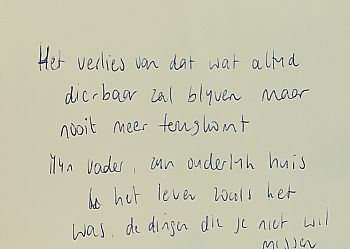 Het verlies van dat wat altijd
dierbaar zal blijven. maar
nooit meer terugkomt
Mijn vader, mijn ouderlijk huis
het leven zoals het
was. de dingen die je niet wil
missen